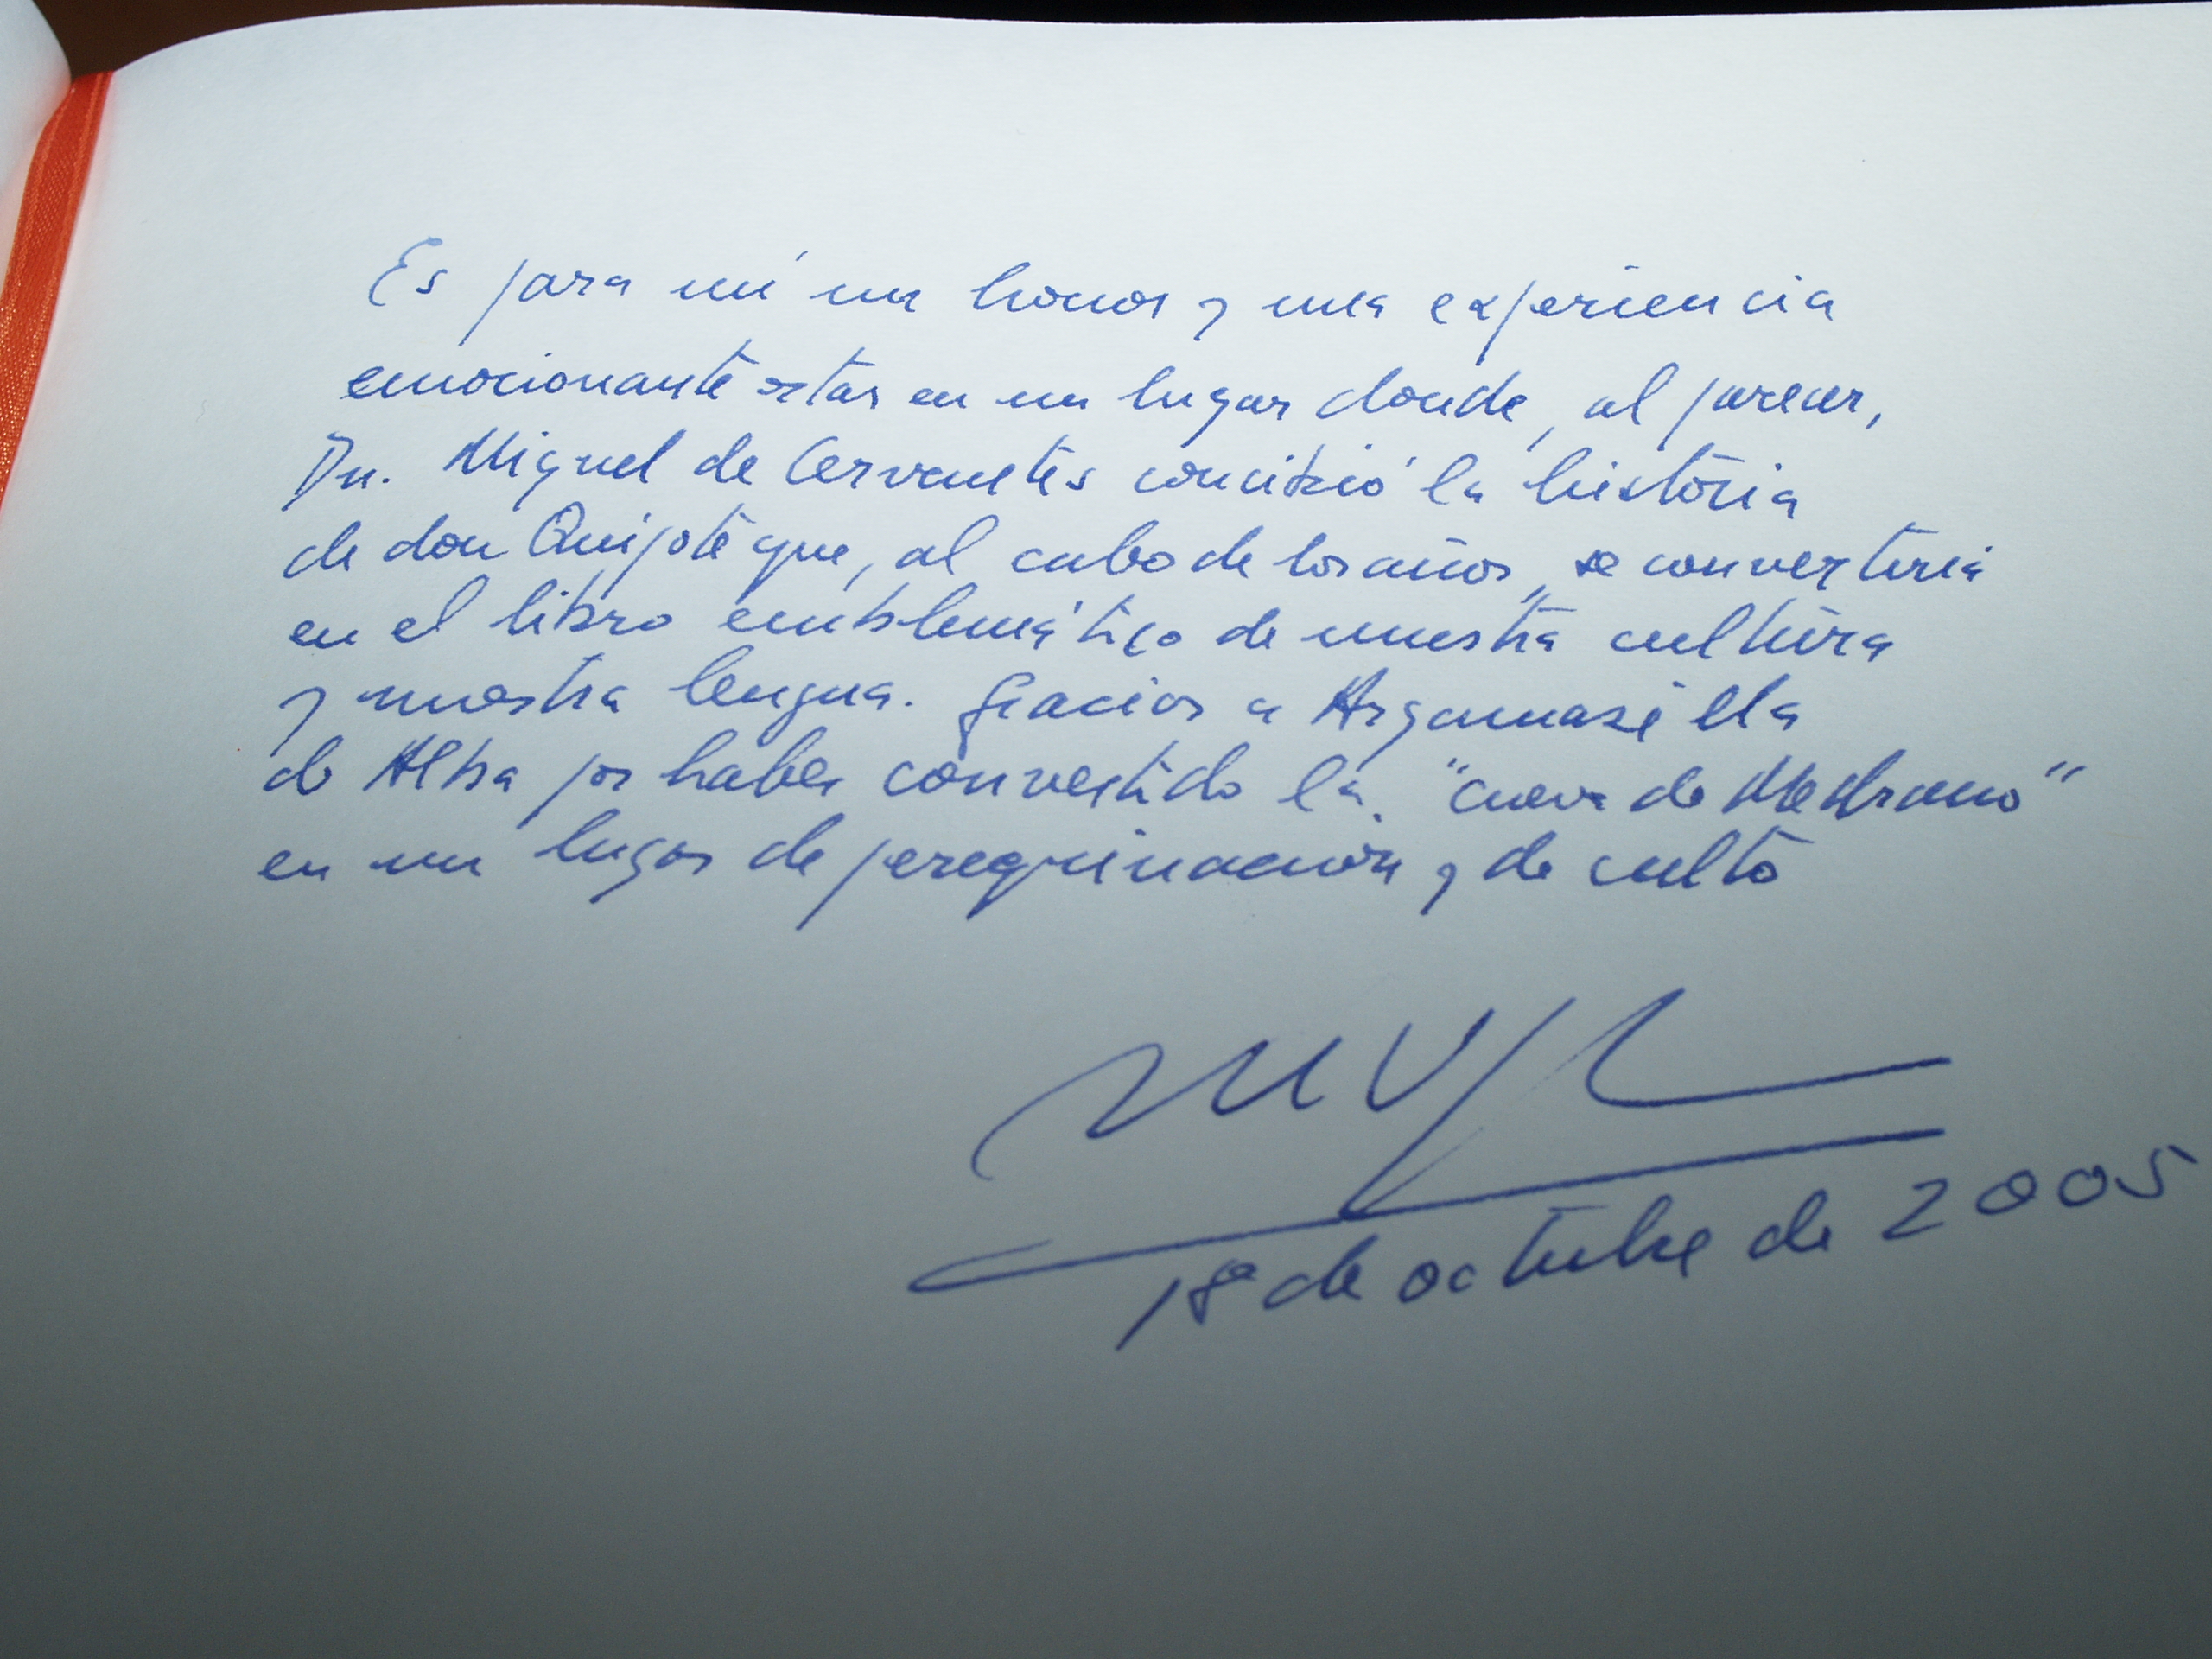 Es para mí un honor y una experiencia
emocionante estar en un lugar donde, al parecer,
Dn. Miguel de Cervantes concibió la historia
de don Quijote que, al cabo de los años, se convertiría
en el libro emblemático de nuestra cultura
y nuestra lengua. Gracias a Argamasilla
de Alba por haber convertido la "cueva de Medrano"
en un lugar de peregrinación y de culto
18 de octubre de 2005